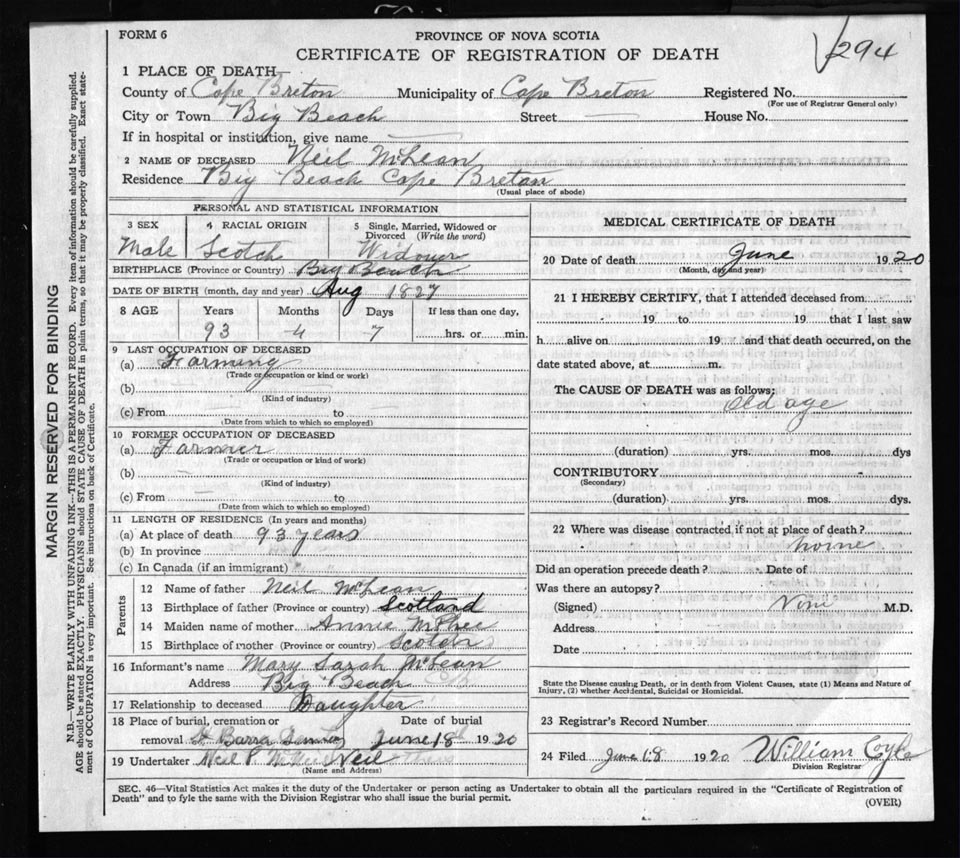 FORM 6
PROVINCE OF NOVA SCOTIA
294
CERTIFICATE OF REGISTRATION OF DEATH
1 PLACE OF DEATH
County of Cape Breton Municipality of Cape Breton Registered No.
(For use of Registrar General only)
City or Town Big Beach Street — House No.
If in hospital or institution, give name —
2 NAME OF DECEASED Neil McLean
Residence Big Beach Cape Breton
(Usual place of abode)
PERSONAL AND STATISTICAL INFORMATION
3 SEX 4 RACIAL ORIGIN 5 Single, Married, Widowed or Divorced (Write the word)
Male Scotch Widower
BIRTHPLACE (Province or Country) Big Beach
DATE OF BIRTH (month, day and year) Aug 1827
8 AGE Years Months Days If less than one day,
93 4 7 hrs. or min.
9 LAST OCCUPATION OF DECEASED
(a) Farming
(Trade or occupation or kind or work)
(b)
(Kind of industry)
(c) From to
(Date from which to which so employed)
10 FORMER OCCUPATION OF DECEASED
(a) Farmer
(Trade or occupation or kind of work)
(b)
(Kind of industry)
(c) From — to
(Date from which to which so employed)
11 LENGTH OF RESIDENCE (In years and months)
(a) At place of death 93 years
(b) In province
(c) In Canada (if an immigrant)
Parents
12 Name of father Neil McLean
13 Birthplace of father (Province or country) Scotland
14 Maiden name of mother Annie McPhee
15 Birthplace of mother (Province or country)
16 Informant's name Mary Sarah McLean
Address Big Beach
17 Relationship to deceased Daughter
18 Place of burial, cremation or Date of burial
removal St Barra June 18 1920
19 Undertaker Neil P. Neil
(Name and Address)
MEDICAL CERTIFICATE OF DEATH
20 Date of death June 1920
(Month, day and year)
21 I HEREBY CERTIFY, that I attended deceased from
19 to 19 that I last saw
h alive on 19 and that death occurred, on the
date stated above, at m.
The CAUSE OF DEATH was as follows;
Old age
(duration) yrs. mos. dys
CONTRIBUTORY
(Secondary)
(duration) yrs. mos. dys.
22 Where was disease contracted if not at place of death?
Did an operation precede death? Date of
Was there an autopsy?
(Signed) M.D.
Address
Date
State the Disease causing Death, or in death from Violent Causes, state (1) Means and Nature of
Injury, (2) whether Accidental, Suicidal or Homicidal.
23 Registrar's Record Number
24 Filed June 18 1920 William Coyle
Division Registrar
SEC. 46—Vital Statistics Act makes it the duty of the Undertaker or person acting as Undertaker to obtain all the particulars required in the "Certificate of Registration of
Death" and to fyle the same with the Division Registrar who shall issue the burial permit.
(OVER)
MARGIN RESERVED FOR BINDING
N.B.—WRITE PLAINLY WITH UNFADING INK—THIS IS A PERMANENT RECORD. Every item of information should be carefully supplied.
AGE should be stated EXACTLY. PHYSICIANS should STATE CAUSE OF DEATH in plain terms, so that it may be properly classified. Exact state-
ment of OCCUPATION is very important. See instructions on back of Certificate.